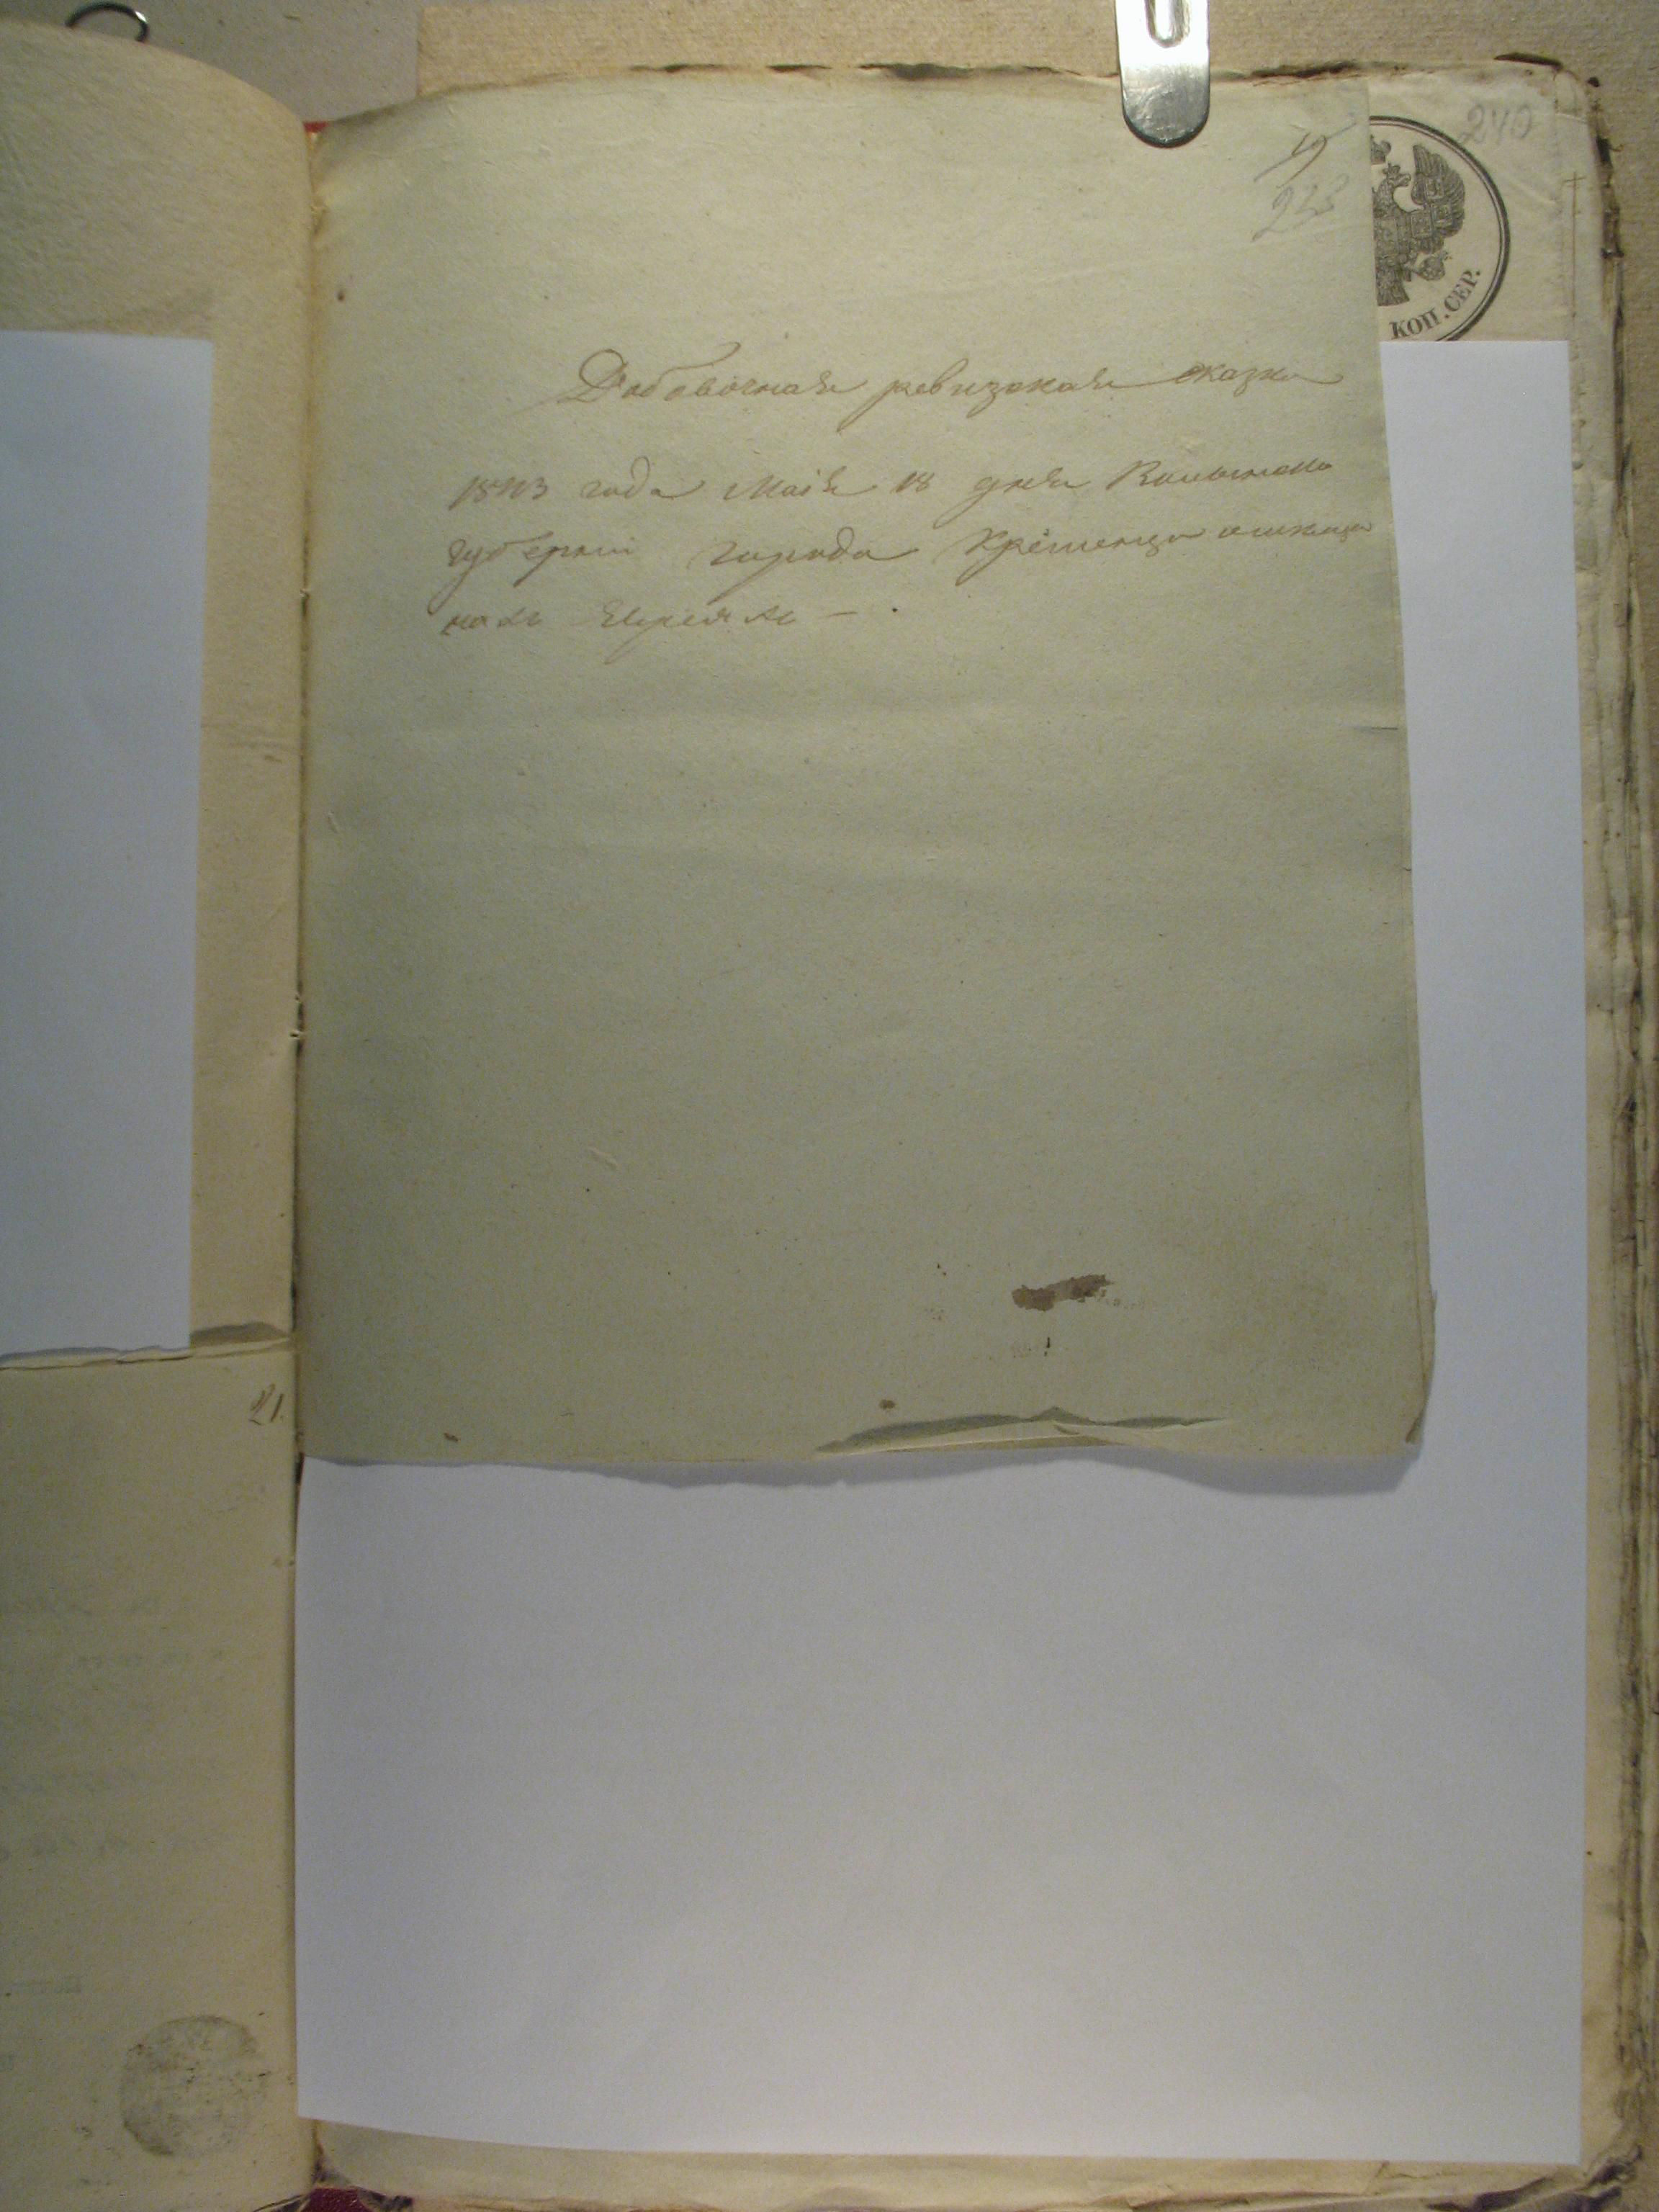 240
19
238
КОП. СЕР.
Добавочная ревизская сказка
1843 года Маія 18 дня Волынской
губерніи города Кременца
Евреяхъ —
21.